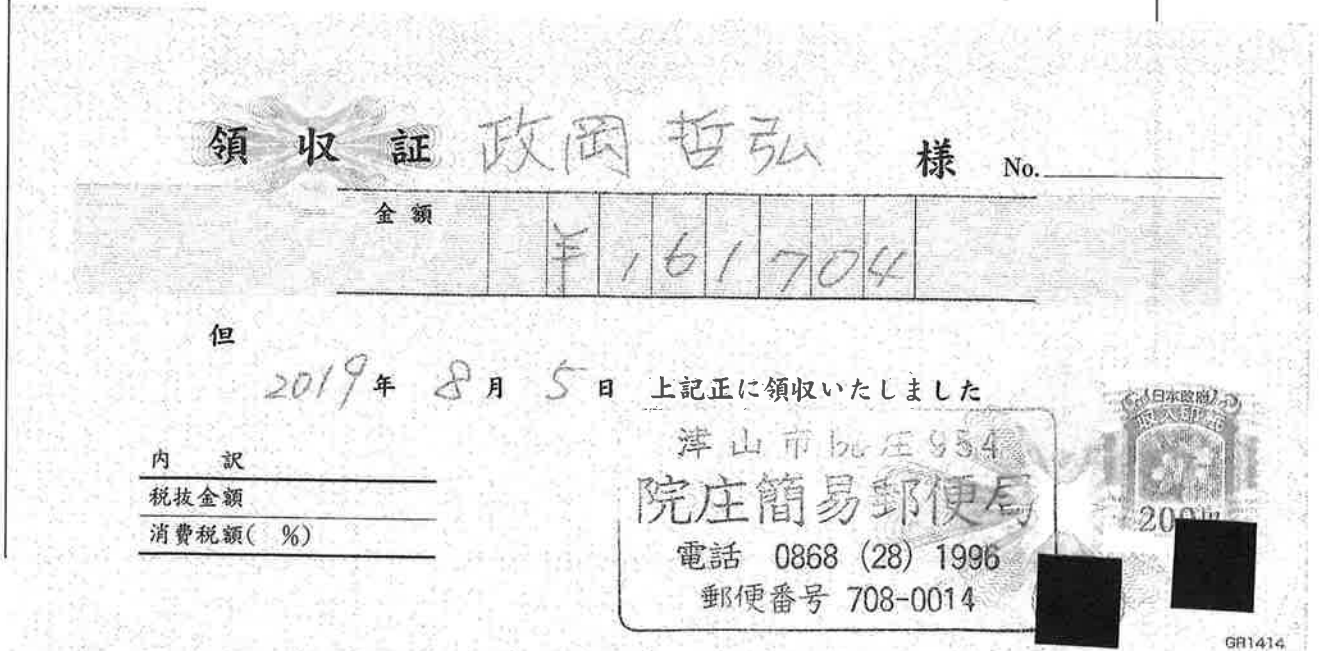 領収証 政岡 哲弘 様 No.
金額 ¥161704
但
2019年 8月 5日 上記正に領収いたしました
内 訳
税抜金額
消費税額( %)
津山市院庄954
院庄簡易郵便局
電話 0868 (28) 1996
郵便番号 708-0014
日本政府
収入印紙
200円
GR1414